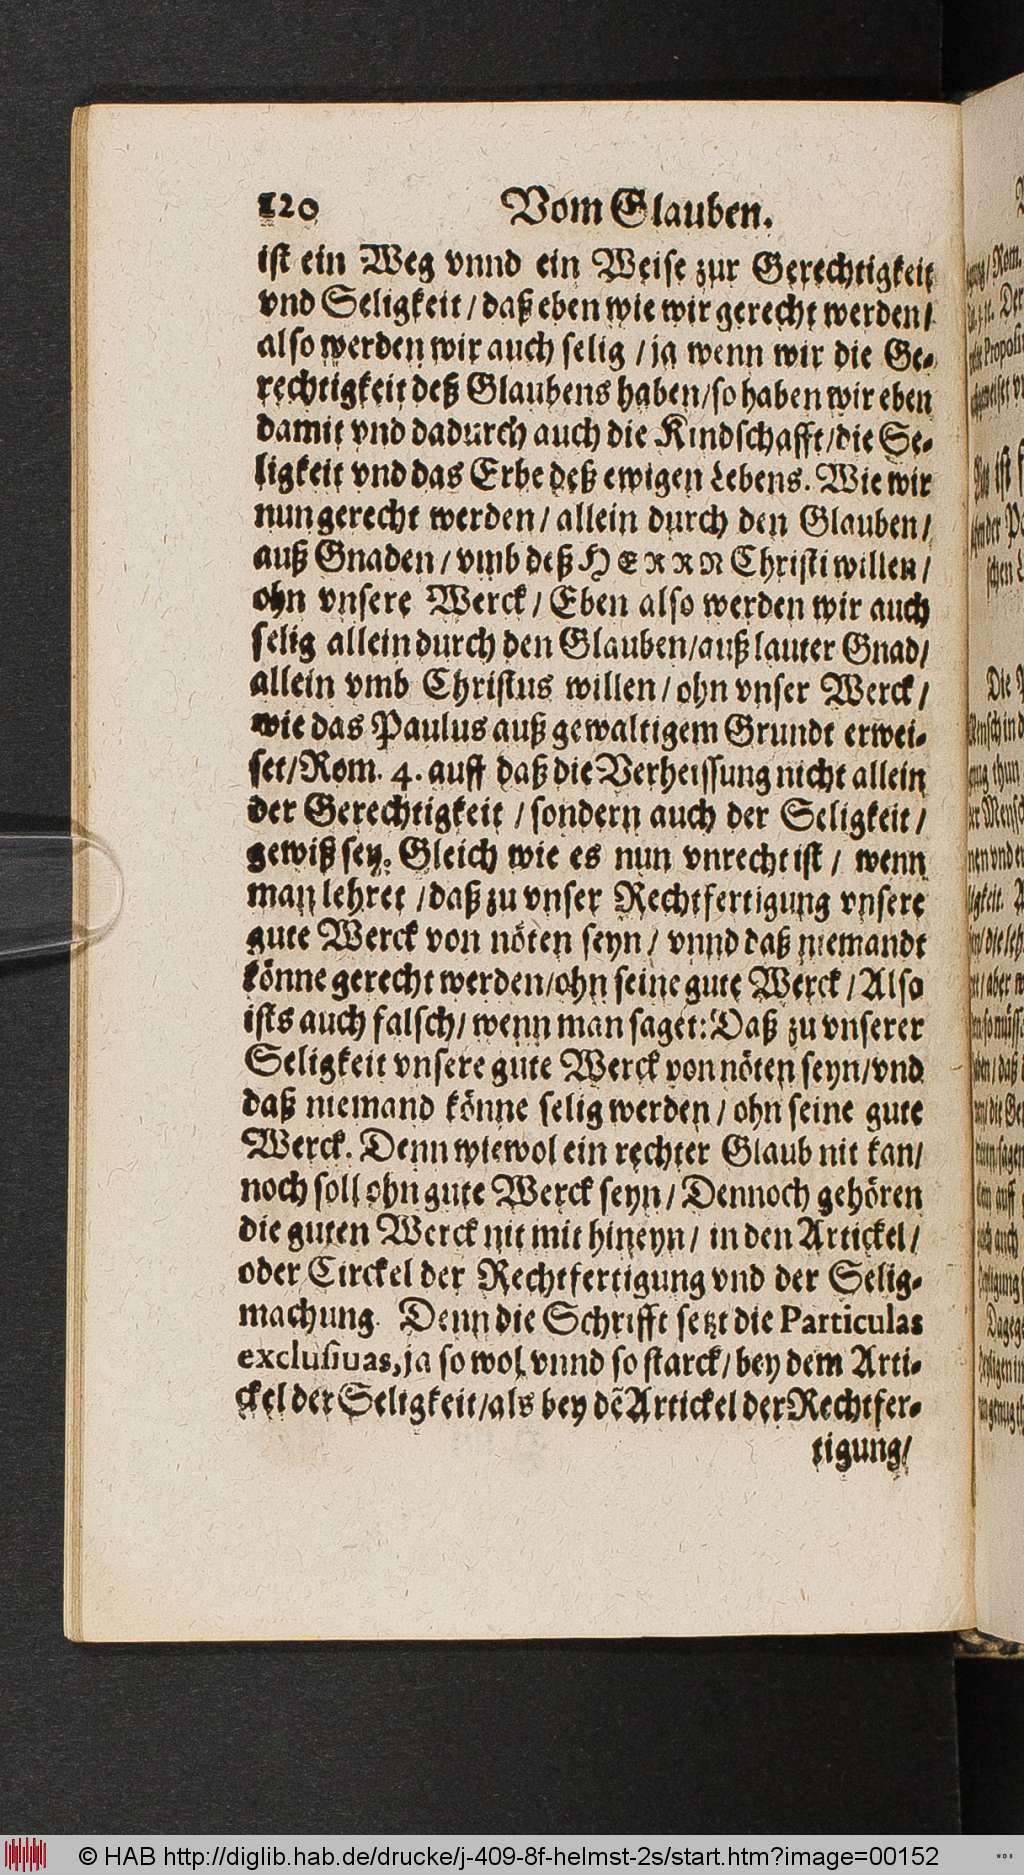 120 Vom Glauben.
ist ein Weg vnnd ein Weise zur Gerechtigkeit
vnd Seligkeit / daß eben wie wir gerecht werden /
also werden wir auch selig / ja wenn wir die Ge-
rechtigkeit deß Glaubens haben / so haben wir eben
damit vnd dadurch auch die Kindschafft / die Se-
ligkeit vnd das Erbe deß ewigen Lebens. Wie wir
nun gerecht werden / allein durch den Glauben /
auß Gnaden / vmb deß HERRN Christi willen /
ohn vnsere Werck / Eben also werden wir auch
selig allein durch den Glauben / auß lauter Gnad /
allein vmb Christus willen / ohn vnser Werck /
wie das Paulus auß gewaltigem Grundt erwei-
set / Rom. 4. auff daß die Verheissung nicht allein
der Gerechtigkeit / sondern auch der Seligkeit /
gewiß sey. Gleich wie es nun vnrecht ist / wenn
man lehret / daß zu vnser Rechtfertigung vnsere
gute Werck von nöten seyn / vnnd daß niemandt
könne gerecht werden / ohn seine gute Werck / Also
ists auch falsch / wenn man saget: Daß zu vnserer
Seligkeit vnsere gute Werck von nöten seyn / vnd
daß niemand könne selig werden / ohn seine gute
Werck. Denn wiewol ein rechter Glaub nit kan /
noch soll ohn gute Werck seyn / Dennoch gehören
die guten Werck nit mit hineyn / in den Artickel /
oder Circkel der Rechtfertigung vnd der Selig-
machung. Denn die Schrifft setzt die Particulas
exclusiuas, ja so wol vnnd so starck / bey dem Arti-
ckel der Seligkeit / als bey dẽ Artickel der Rechtfer-
tigung /
© HAB http://diglib.hab.de/drucke/j-409-8f-helmst-2s/start.htm?image=00152